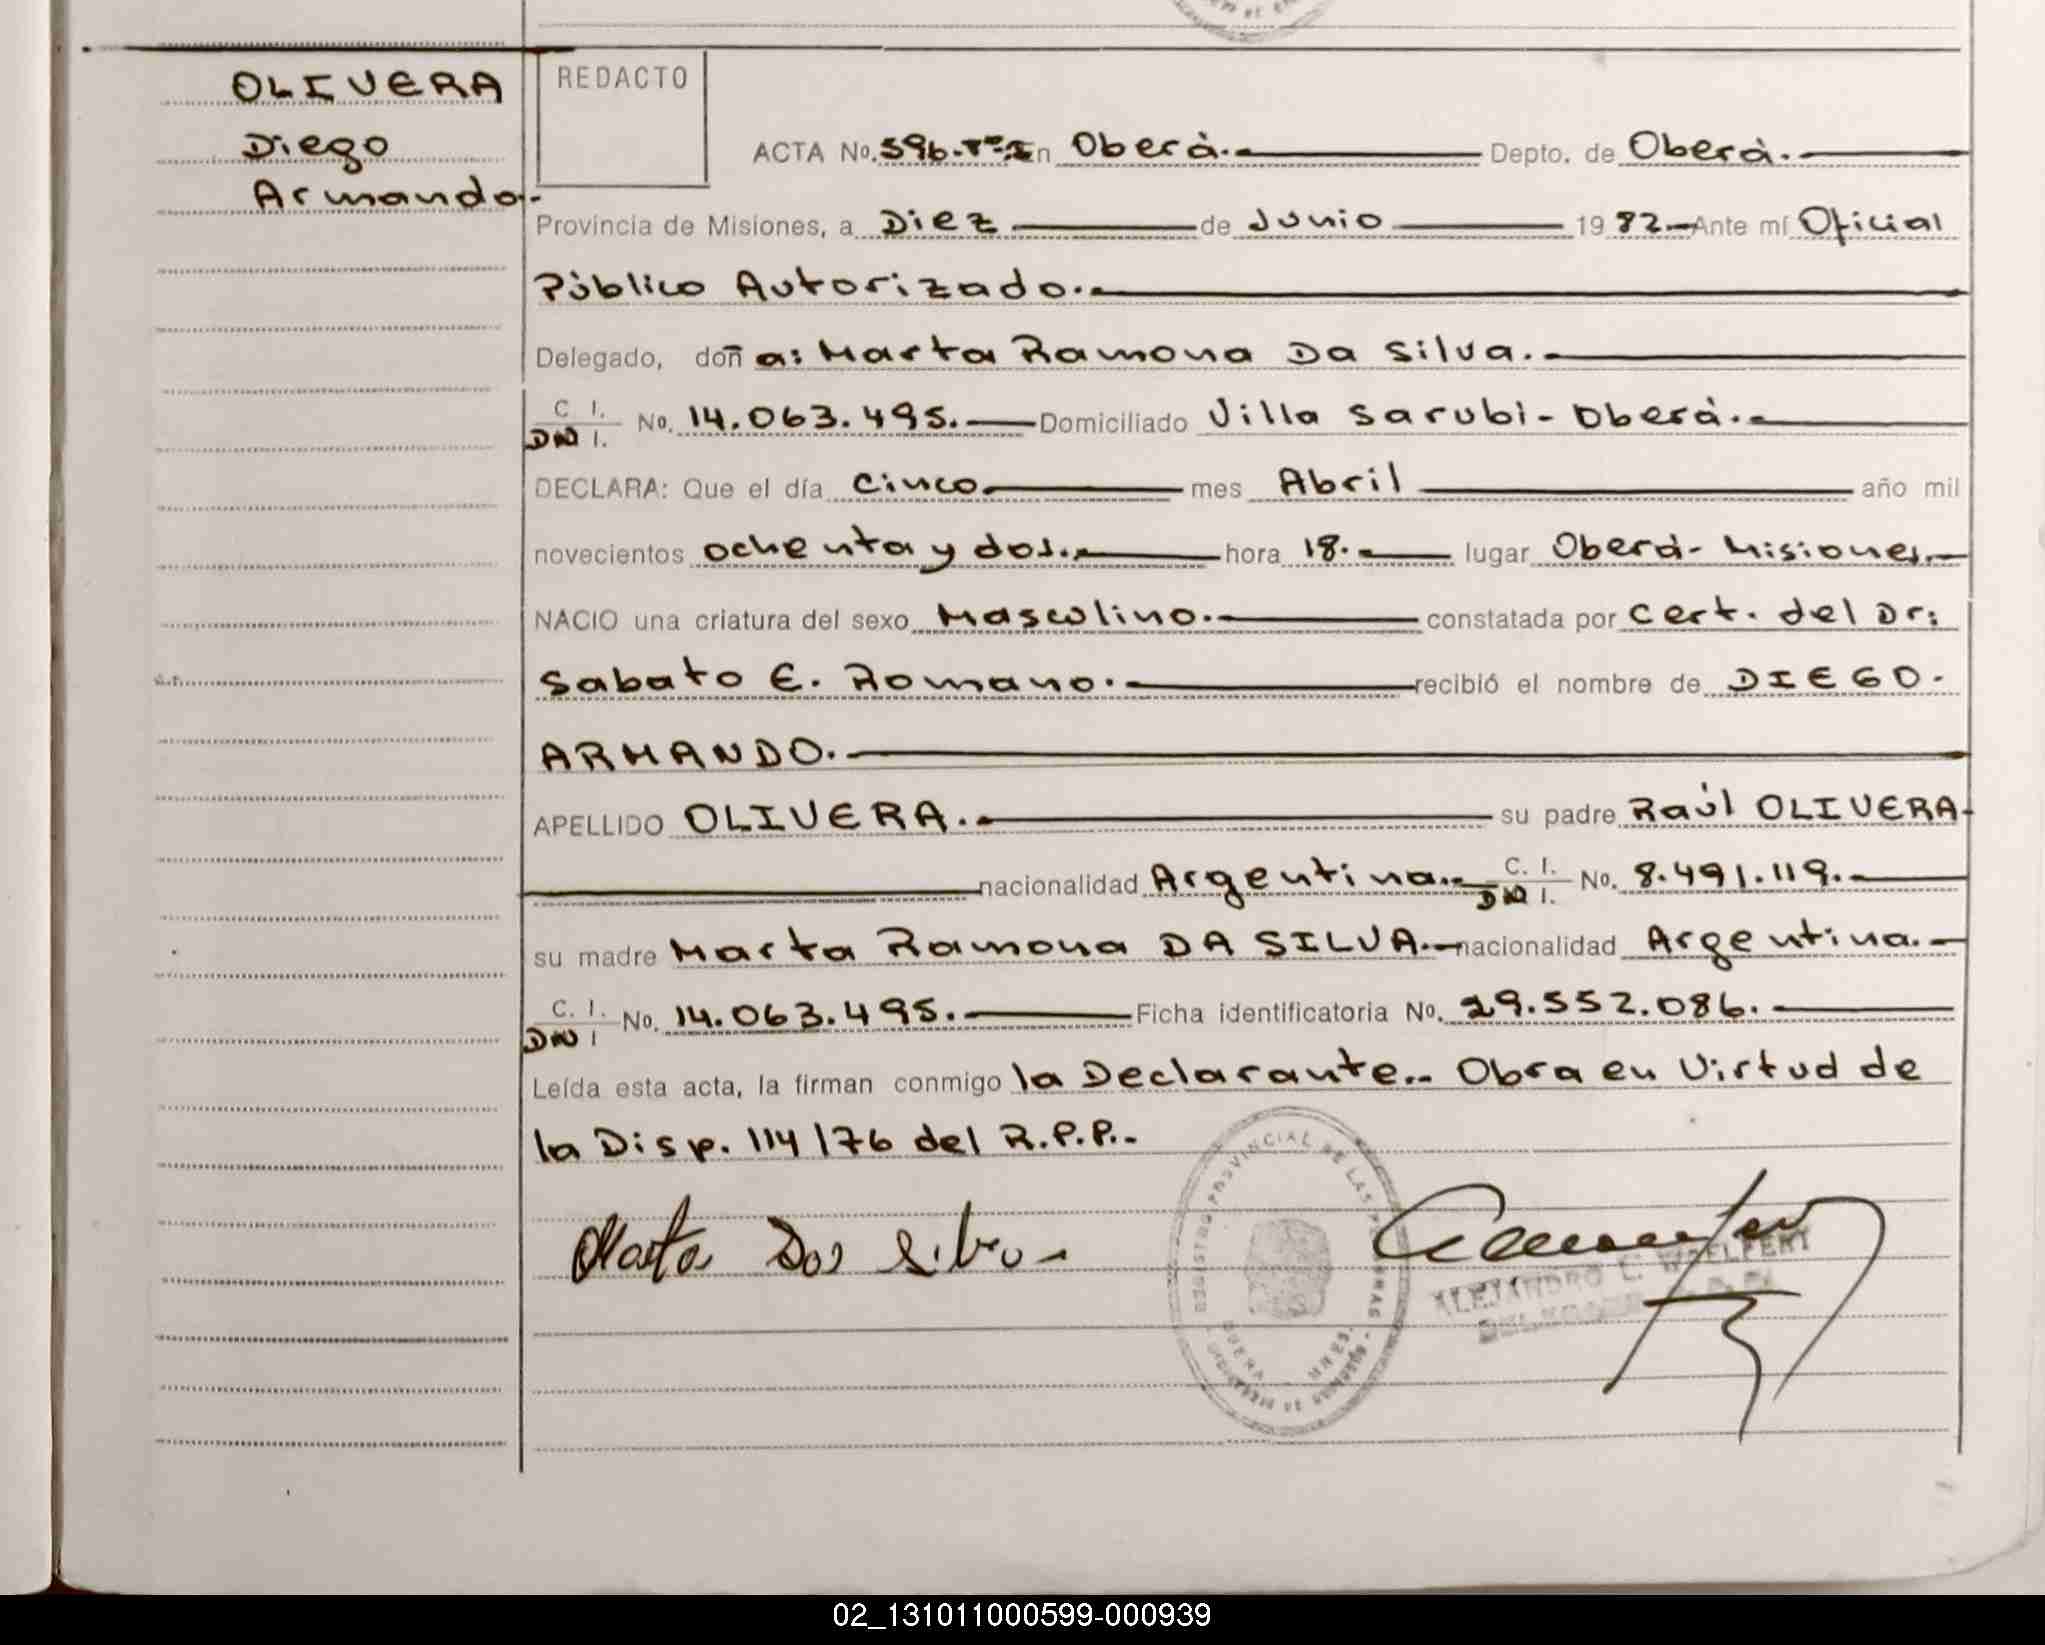 OLIVERA
Diego
Armando.-
REDACTO
ACTA No. 596.Tº.I En Oberá.- Depto. de Oberá.-
Provincia de Misiones, a Diez de Junio 1982.- Ante mí Oficial
Público Autorizado.-
Delegado, doña: Marta Ramona Da Silva.-
C I.
DN I. No. 14.063.495.- Domiciliado Villa Sarubi - Oberá.-
DECLARA: Que el día cinco mes Abril año mil
novecientos ochenta y dos.- hora 18.- lugar Oberá - Misiones.-
NACIO una criatura del sexo Masculino.- constatada por Cert. del Dr:
Sabato E. Romano.- recibió el nombre de DIEGO.
ARMANDO.-
APELLIDO OLIVERA.- su padre Raúl OLIVERA-
nacionalidad Argentina.- C. I.
DN I. No. 8.491.119.-
su madre Marta Ramona DA SILVA.- nacionalidad Argentina.-
C. I.
DN I No. 14.063.495.- Ficha identificatoria No. 29.552.086.-
Leída esta acta, la firman conmigo la Declarante.- Obra en Virtud de
la Disp. 114/76 del R.P.P.-
Marta Das Silva-
REGISTRO PROVINCIAL DE LAS PERSONAS
OBERA - MNES.
ALEJANDRO L. WOELFERT
02_131011000599-000939